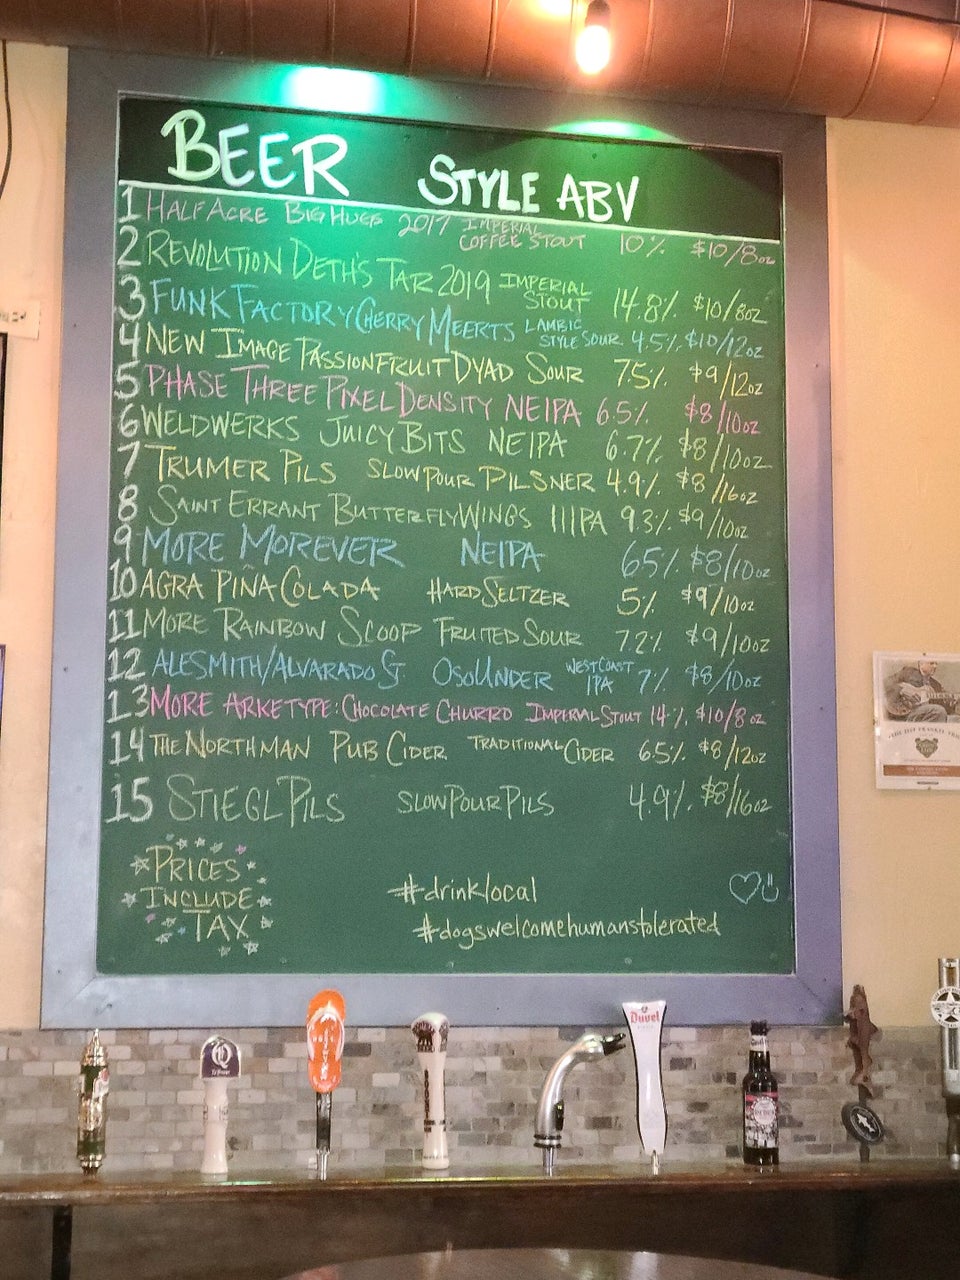 BEER STYLE ABV
1 HALF ACRE BIG HUGS 2017 IMPERIAL COFFEE STOUT 10% $10/8oz
2 REVOLUTION DETH'S TAR 2019 IMPERIAL STOUT 14.8% $10/8oz
3 FUNK FACTORY CHERRY MEERTS LAMBIC STYLE SOUR 4.5% $10/12oz
4 NEW IMAGE PASSIONFRUIT DYAD SOUR 7.5% $9/12oz
5 PHASE THREE PIXEL DENSITY NEIPA 6.5% $8/10oz
6 WELDWERKS JUICY BITS NEIPA 6.7% $8/10oz
7 TRUMER PILS SLOW POUR PILSNER 4.9% $8/16oz
8 SAINT ERRANT BUTTERFLY WINGS IIIPA 9.3% $9/10oz
9 MORE MOREVER NEIPA 65% $8/10oz
10 AGRA PIÑA COLADA HARD SELTZER 5% $9/10oz
11 MORE RAINBOW SCOOP FRUITED SOUR 7.2% $9/10oz
12 ALESMITH/ALVARADO St. OSO UNDER WEST COAST IPA 7% $8/10oz
13 MORE ARKETYPE: CHOCOLATE CHURRO IMPERIAL STOUT 14% $10/8oz
14 THE NORTHMAN PUB CIDER TRADITIONAL CIDER 6.5% $8/12oz
15 STIEGL PILS SLOW POUR PILS 4.9% $8/16oz
PRICES
INCLUDE
TAX
#drinklocal
#dogswelcomehumanstolerated
Duvel